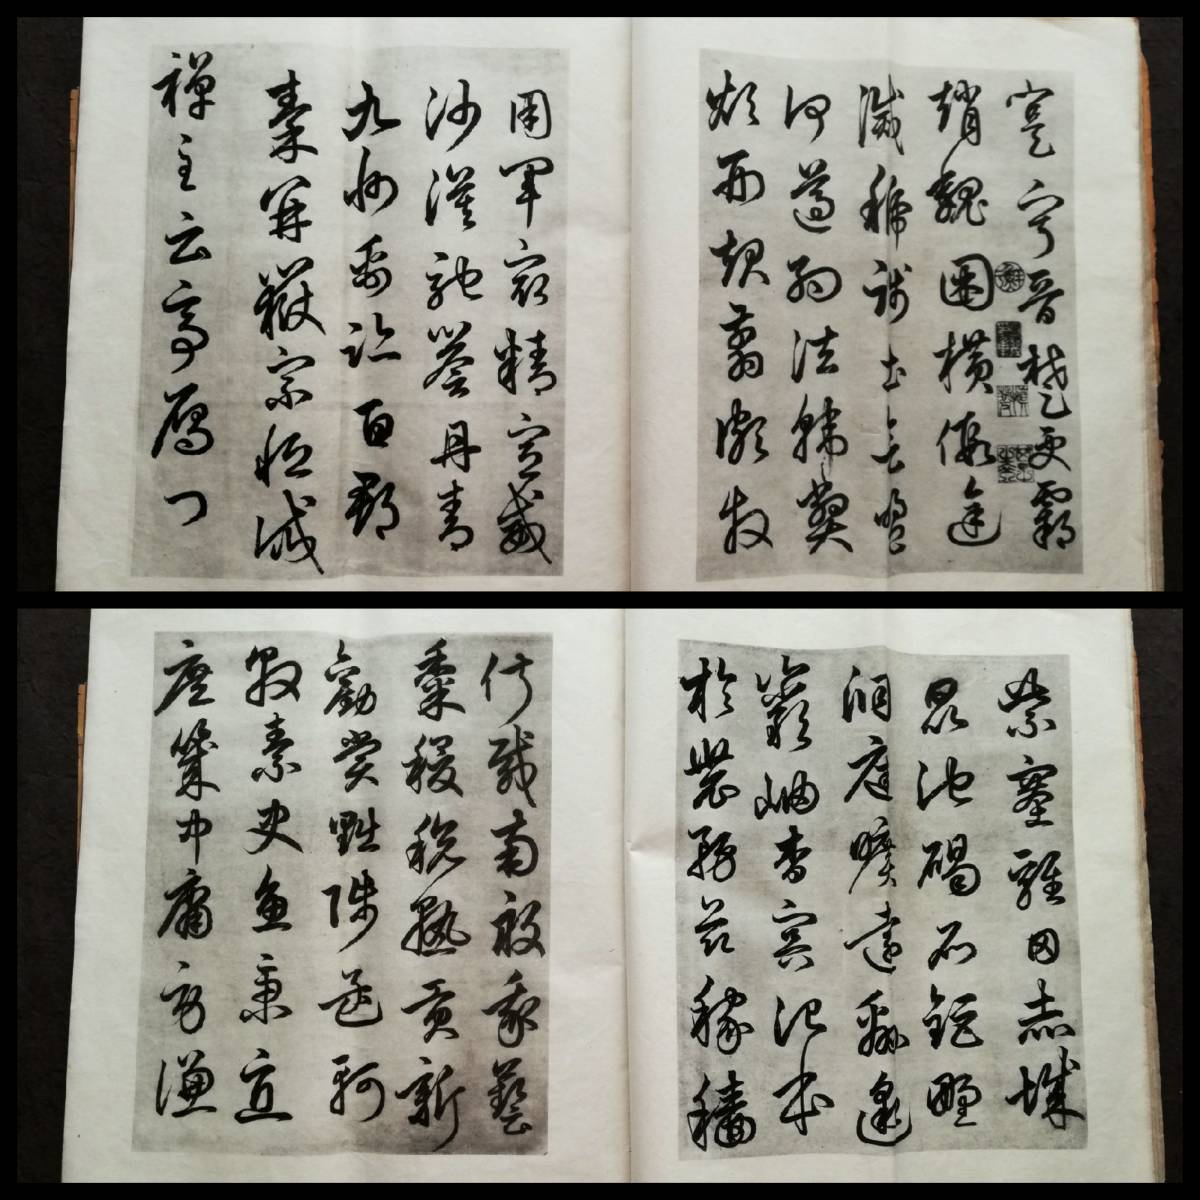 寔寧晉楚更霸
趙魏困橫假途
滅虢踐土會盟
何遵約法韓弊
煩刑起翦頗牧
用軍最精宣威
沙漠馳譽丹青
九州禹跡百郡
秦并嶽宗恒岱
禪主云亭雁門
紫塞雞田赤城
昆池碣石鉅野
洞庭曠遠緜邈
巖岫杳冥治本
於農務茲稼穡
俶載南畝我藝
黍稷稅熟貢新
勸賞黜陟孟軻
敦素史魚秉直
庶幾中庸勞謙